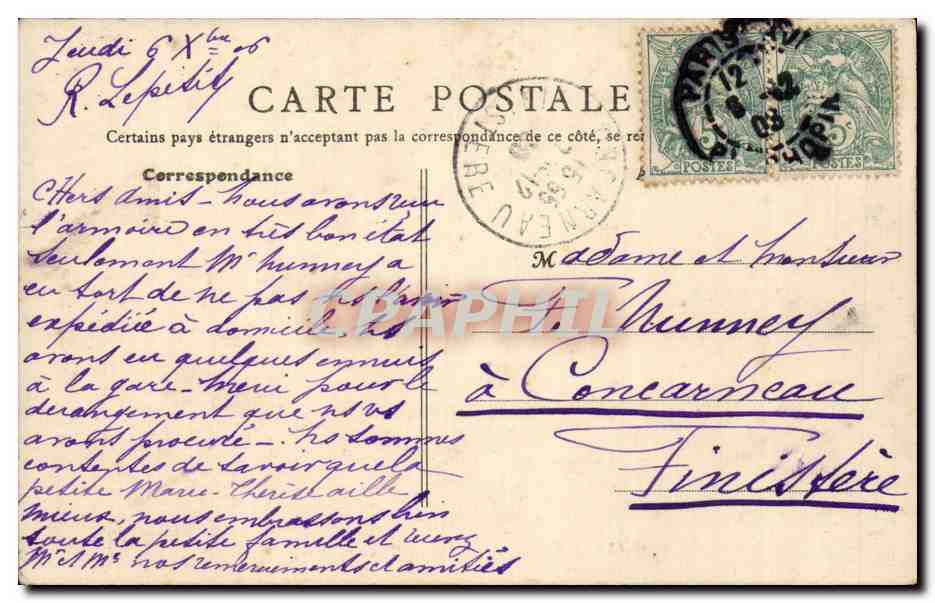 Jeudi 6 Xbre 06
R. Lepetit
CARTE POSTALE
Certains pays étrangers n'acceptant pas la correspondance de ce côté, se
Correspondance
Chers Amis – Nous avons reçu
l'armoire en très bon état
seulement Mr Nunney a
eu tort de ne pas l'avoir
expédiée à domicile, ns
avons eu quelques ennuis
à la gare – Merci pour le
derangement que ns vs
avons procuré – Ns sommes
contentes de savoir que la
petite Marie-Thérèse aille
mieux, nous embrassons bien
toute la petite famille et
Mr et Me nos remerciements et amitiés
Madame et Monsieur
Nunney
à Concarneau
Finistère
CONCARNEAU
FINISTERE
PARIS
12
5c
5c
POSTES
POSTES
CPAPHIL